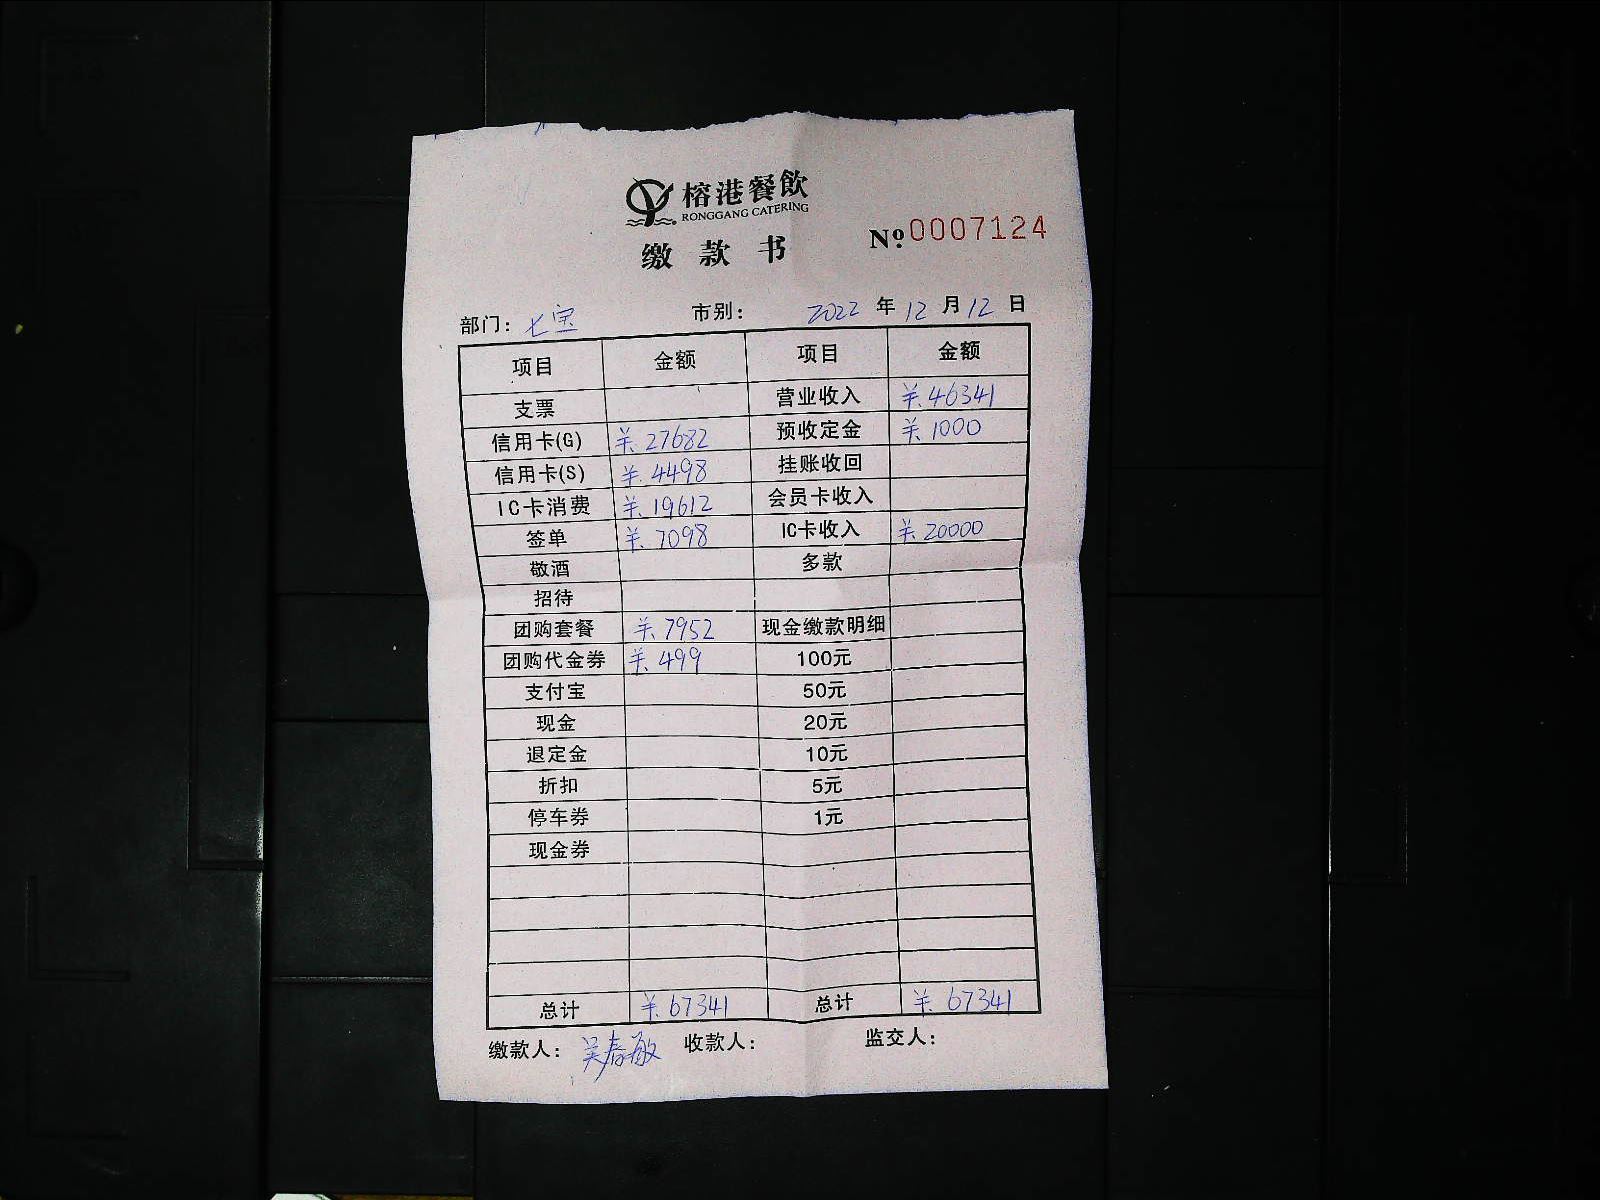 榕港餐飲
RONGGANG CATERING
缴款书 №0007124
部门：七宝 市别： 2022年12月12日
项目 金额 项目 金额
支票 营业收入 ¥.46341
信用卡(G) ¥.27682 预收定金 ¥.1000
信用卡(S) ¥.4498 挂账收回
IC卡消费 ¥.19612 会员卡收入
签单 ¥.7098 IC卡收入 ¥.20000
敬酒 多款
招待
团购套餐 ¥.7952 现金缴款明细
团购代金券 ¥.499 100元
支付宝 50元
现金 20元
退定金 10元
折扣 5元
停车券 1元
现金券
总计 ¥.67341 总计 ¥.67341
缴款人：吴春敏 收款人： 监交人：